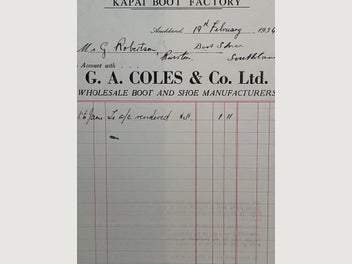 KAPAI BOOT FACTORY
Auckland 19th February 1934
Mr G Robertson Boot Store
Riverton Southland
Account with
G. A. COLES & Co. Ltd.
WHOLESALE BOOT AND SHOE MANUFACTURERS
Jan To a/c rendered